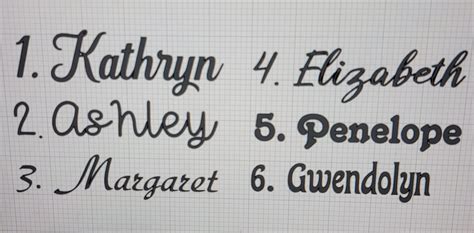 1. Kathryn
2. Ashley
3. Margaret
4. Elizabeth
5. Penelope
6. Gwendolyn